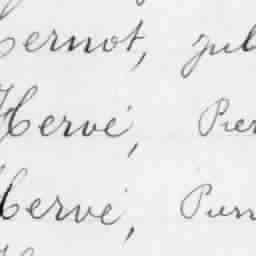 Cernot, Jul
Hervé, Pier
Hervé, Pierr